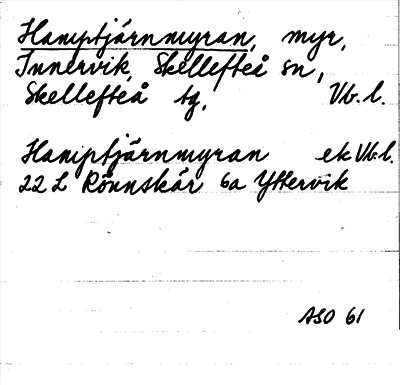 Hamptjärnmyran, myr,
Innervik, Skellefteå sn,
Skellefteå tg, Vb. l.
Hamptjärnmyran ek Vb. l.
22 L Rönnskär 6a Yttervik
ASO 61